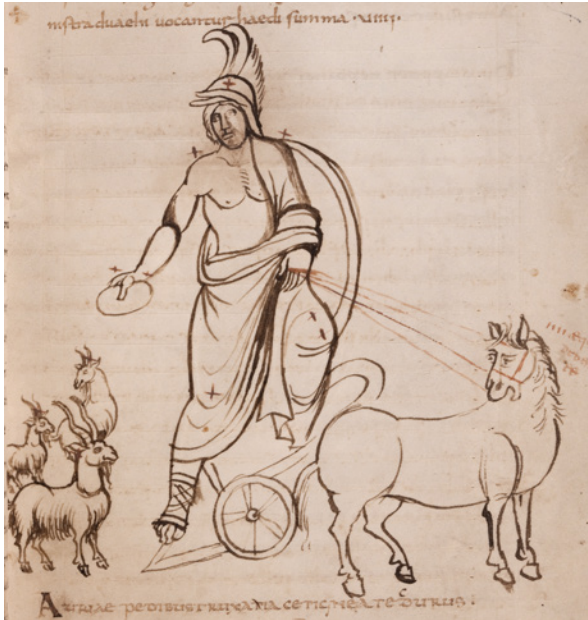 inistra duaehi uocantur haedi summa ·xiiii·
AURIAE PEDIBUS TRUXARIA CETIGNEATEDURUS: